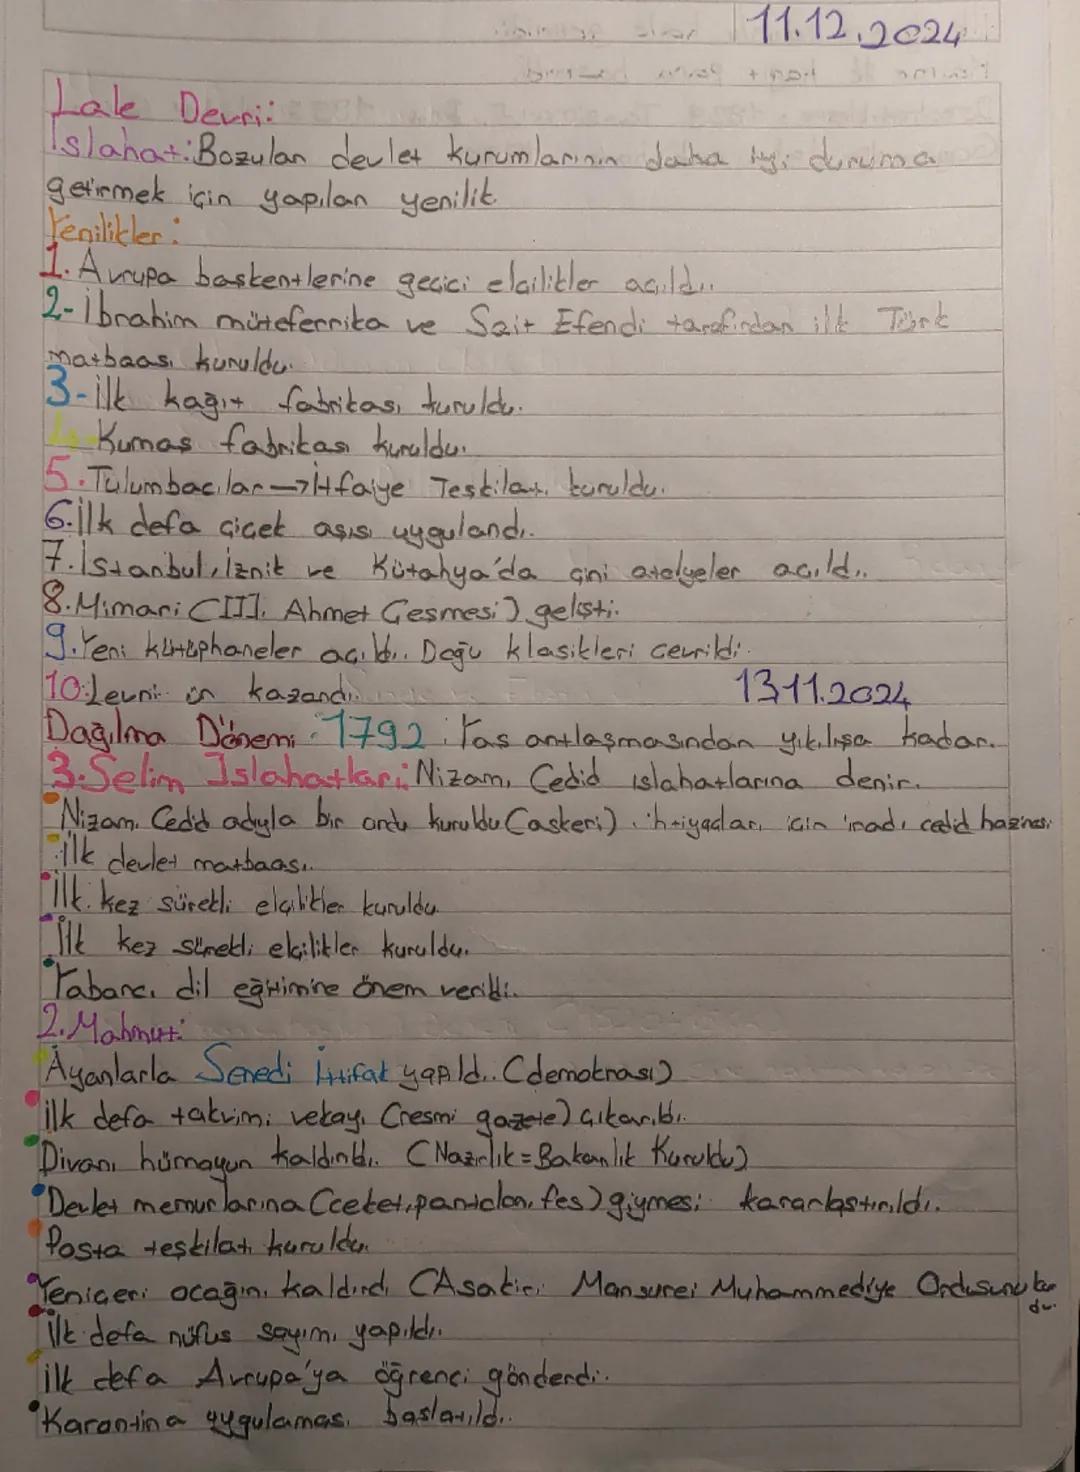 11.12.2024
Lale Devri:
Islahat: Bozulan devlet kurumlarının daha iyi duruma
getirmek için yapılan yenilik
Yenilikler:
1. Avrupa başkentlerine geçici elçilikler açıldı.
2- İbrahim müteferrika ve Sait Efendi tarafından ilk Türk
matbaası kuruldu.
3- İlk kağıt fabrikası kuruldu.
4- Kumaş fabrikası kuruldu.
5. Tulumbacılar → İtfaiye Teşkilatı kuruldu.
6. İlk defa çiçek aşısı uygulandı.
7. İstanbul, İznik ve Kütahya'da çini atelyeler açıldı.
8. Mimari (III. Ahmet Çeşmesi) gelişti.
9. Yeni kütüphaneler açıldı. Doğu klasikleri çevrildi.
10. Levni ün kazandı.
13.11.2024
Dağılma Dönemi: 1792 Yaş antlaşmasından yıkılışa kadar.
3. Selim Islahatları: Nizamı Cedid ıslahatlarına denir.
Nizamı Cedid adıyla bir ordu kuruldu (askeri). ihtiyaçları için iradı cedid haznesi
İlk devlet matbaası.
İlk kez sürekli elçilikler kuruldu
İlk kez sürekli elçilikler kuruldu.
Yabancı dil eğitimine önem verildi.
2. Mahmut:
Ayanlarla Senedi İttifak yapıldı. (demokrasi)
ilk defa takvimi vekayi (resmi gazete) çıkarıldı.
Divanı hümayun kaldırıldı. (Nazırlık = Bakanlık Kuruldu)
Devlet memurlarına (ceket, pantolon, fes) giymesi kararlaştırıldı.
Posta teşkilatı kuruldu.
Yeniçeri ocağını kaldırdı (Asakiri Mansurei Muhammediye Ordusunu kur
du.
İlk defa nüfus sayımı yapıldı.
ilk defa Avrupa'ya öğrenci gönderdi.
Karantina uygulaması başlatıldı.